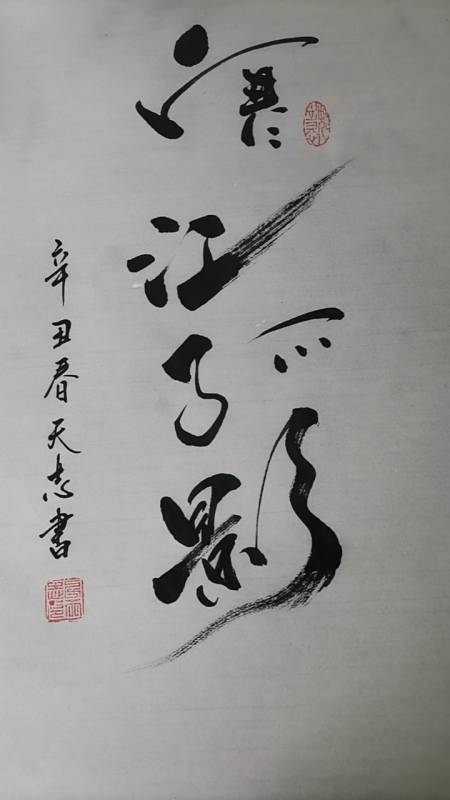 寒江孤影
辛丑春天志書